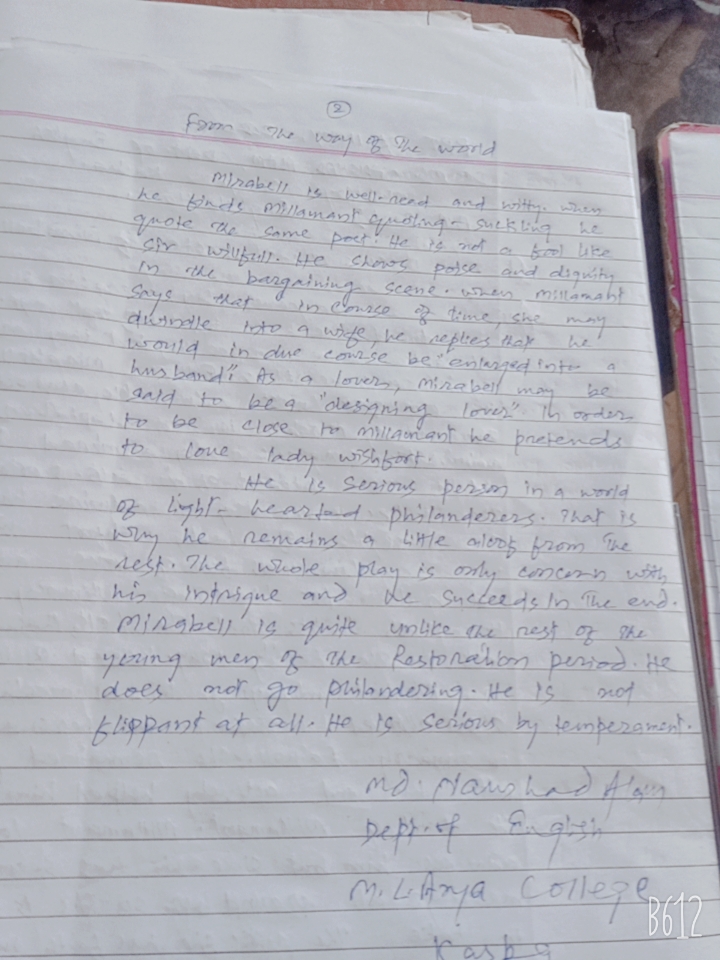 ②
From - The way of The world
Mirabell is well-read and witty. when
he finds Millamant quoting - suckling he
quote the same poet. He is not a fool like
sir willfull. He shows poise and dignity
in the bargaining scene. when millamant
says that in course of time, she may
dwindle into a wife, he replies that he
would in due course be "enlarged into a
husband". As a lover, mirabell may be
said to be a "designing lover". In order
to be close to millamant he pretends
to love lady wishfort.
He is serious person in a world
of light-hearted philanderers. That is
why he remains a little aloof from The
rest. The whole play is only concern with
his intrigue and he succeeds in The end.
Mirabell is quite unlike the rest of the
young men of the Restoration period. He
does not go philandering. He is not
flippant at all. He is serious by temperament.
Md. Naushad Alam
Dept. of English
M.L. Arya College
Kasba
B612